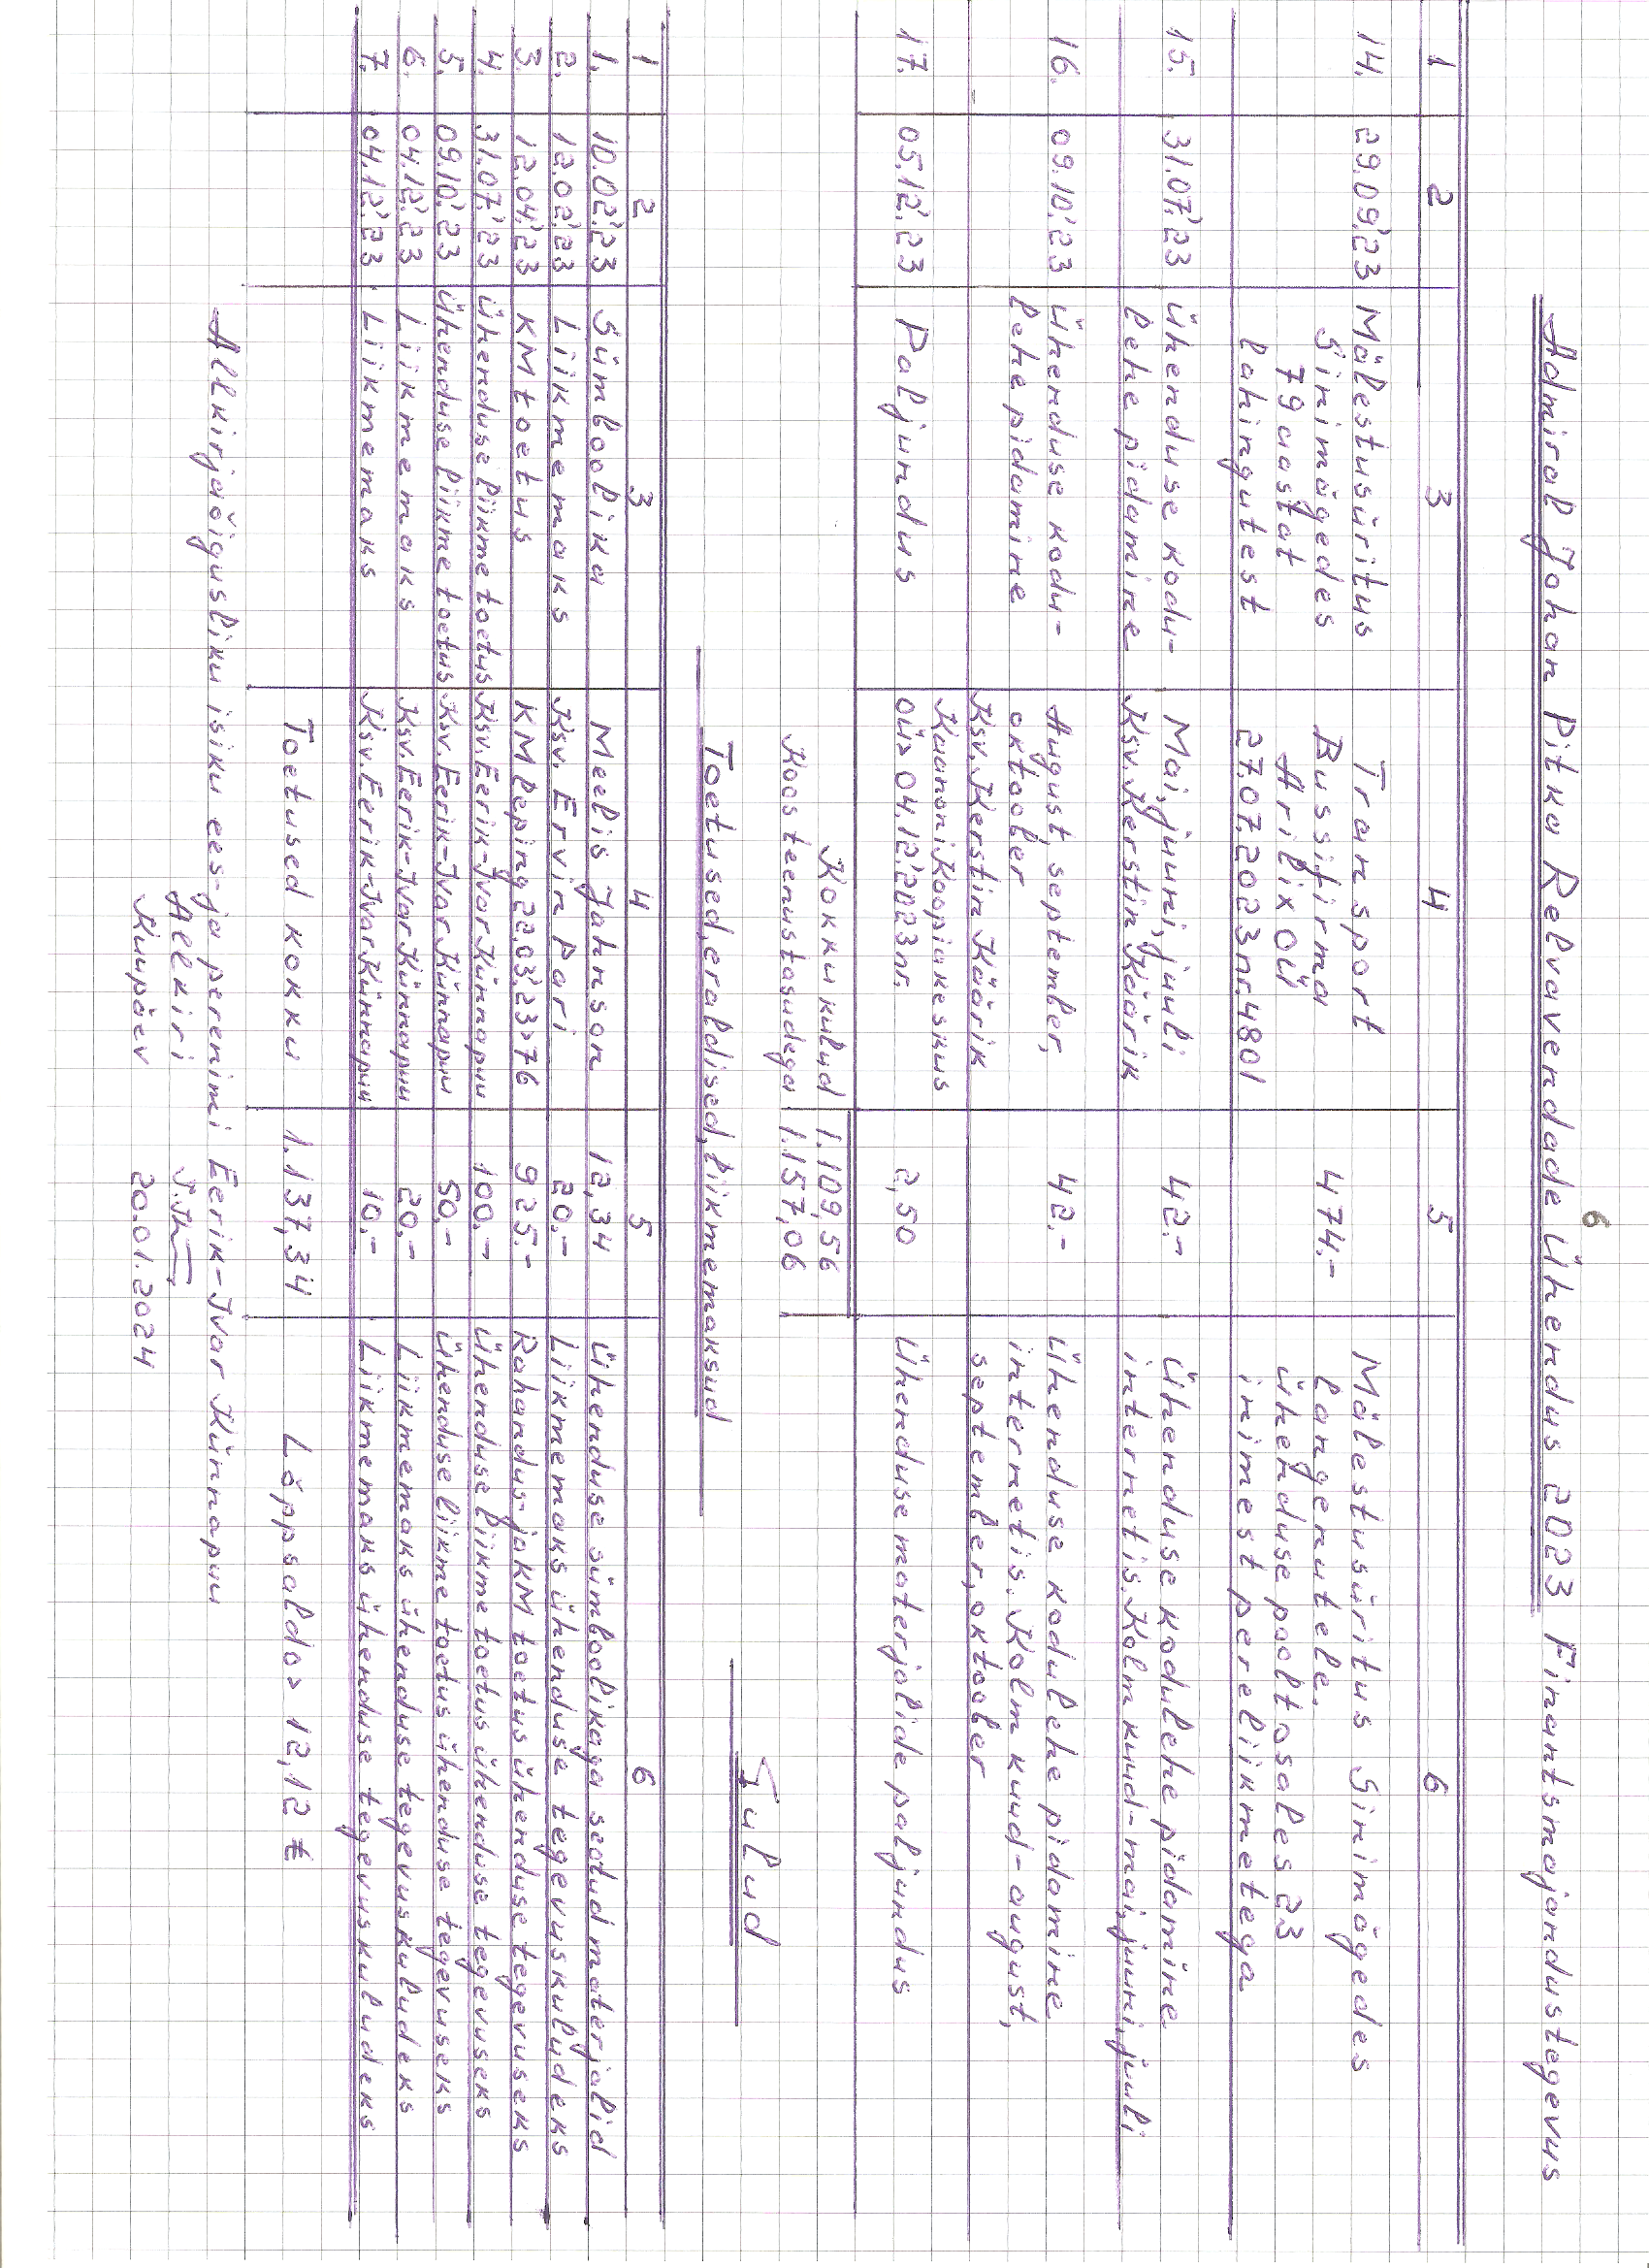 6
Admiral Johan Pitka Relvavendade Ühendus 2023 Finantsmajandustegevus
1 2 3 4 5 6
14. 29.09.'23 Mälestusüritus Transport Mälestusüritus Sinimägedes
Sinimägedes Bussifirma 474.- langenutele.
79 aastat Arilix OÜ Ühenduse poolt osales 23
lahingutest 27.07.2023 nr. 4801 inimest pereliikmetega
15. 31.07.'23 Ühenduse kodu- Mai, juuni, juuli 42.- Ühenduse kodulehe pidamine
lehe pidamine Ksv. Kerstin Käärik internetis. Kolm kuud-mai, juuni, juuli
16. 09.10.'23 Ühenduse kodu- August, september, 42.- Ühenduse kodulehe pidamine
lehe pidamine oktoober internetis. Kolm kuud-august,
Ksv. Kerstin Käärik september, oktoober
Kaanoni Koopiakeskus
17. 05.12.'23 Paljundus OÜ> 04.12.'2023 nr. 2,50 Ühenduse materjalide paljundus
Kokku kulud 1.109,56
Koos teenustasudega 1.157,06
Sulud
Toetused, eraldised, liikmemaksud
1 2 3 4 5 6
1. 10.02.'23 Sümboolika Meelis Jahnson 12,34 Ühenduse sümboolikaga seotud materjalid
2. 12.02.'23 Liikmemaks Ksv. Ervin Pari 20.- Liikmemaks ühenduse tegevuskuludeks
3. 12.04.'23 KM toetus KM Leping 22.03.'23>76 925.- Rahandus- ja KM toetus ühenduse tegevuseks
4. 31.07.'23 Ühenduse liikme toetus Ksv. Eerik-Ivar Künnapuu 100.- Ühenduse liikme toetus ühenduse tegevuseks
5. 09.10.'23 Ühenduse liikme toetus Ksv. Eerik-Ivar Künnapuu 50.- Ühenduse liikme toetus ühenduse tegevuseks
6. 04.12.'23 Liikmemaks Ksv. Eerik-Ivar Künnapuu 20.- Liikmemaks ühenduse tegevuskuludeks
7. 04.12.'23 Liikmemaks Ksv. Eerik-Ivar Künnapuu 10.- Liikmemaks ühenduse tegevuskuludeks
Toetused kokku 1.137,34 Lõppsaldo> 12,12 €
Allkirjaõigusliku isiku ees- ja perenimi Eerik-Ivar Künnapuu
Allkiri
Kuupäev 20.01.2024